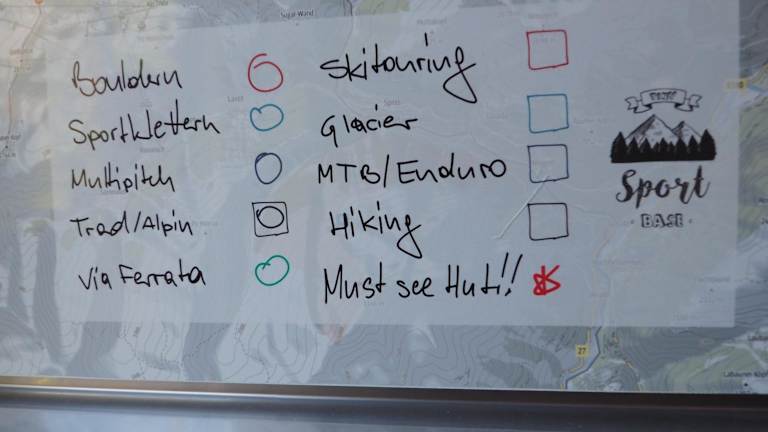 Sugar-Wand
Bouldern
Sportklettern
Multipitch
Trad/Alpin
Via Ferrata
Skitouring
Glacier
MTB/Enduro
Hiking
Must see Hut!!
Sport
BASE
27